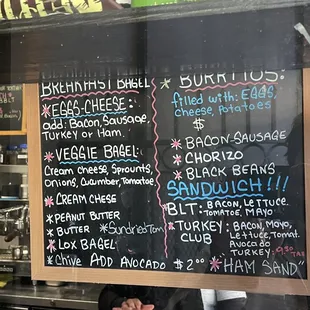 BREAKFAST BAGEL
* EGGS-CHEESE:
add: Bacon, Sausage,
Turkey or Ham.
* VEGGIE BAGEL:
Cream cheese, Sprouts,
Onions, Cucumber, Tomatoe
* CREAM CHESE
* PEANUT BUTTER
* BUTTER * SundriedTom
* LOX BAGEL
* Chive ADD AVOCADO $2.00
* BURRITOS:
filled with: EGGS,
cheese, Potatoes
$
* BACON-SAUSAGE
* CHORIZO
* BLACK BEANS
SANDWICH!!!
BLT: BACON, LETTUCE.
TOMATOE, MAYO
* TURKEY: BACON, MAYO,
CLUB Lettuce, Tomat.
Avocado
TURKEY
* "HAM SAND"